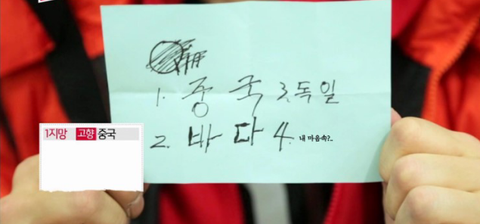 1. 중국 3. 독일
2. 바다 4. 내 마음속?..
1지망 고향 중국